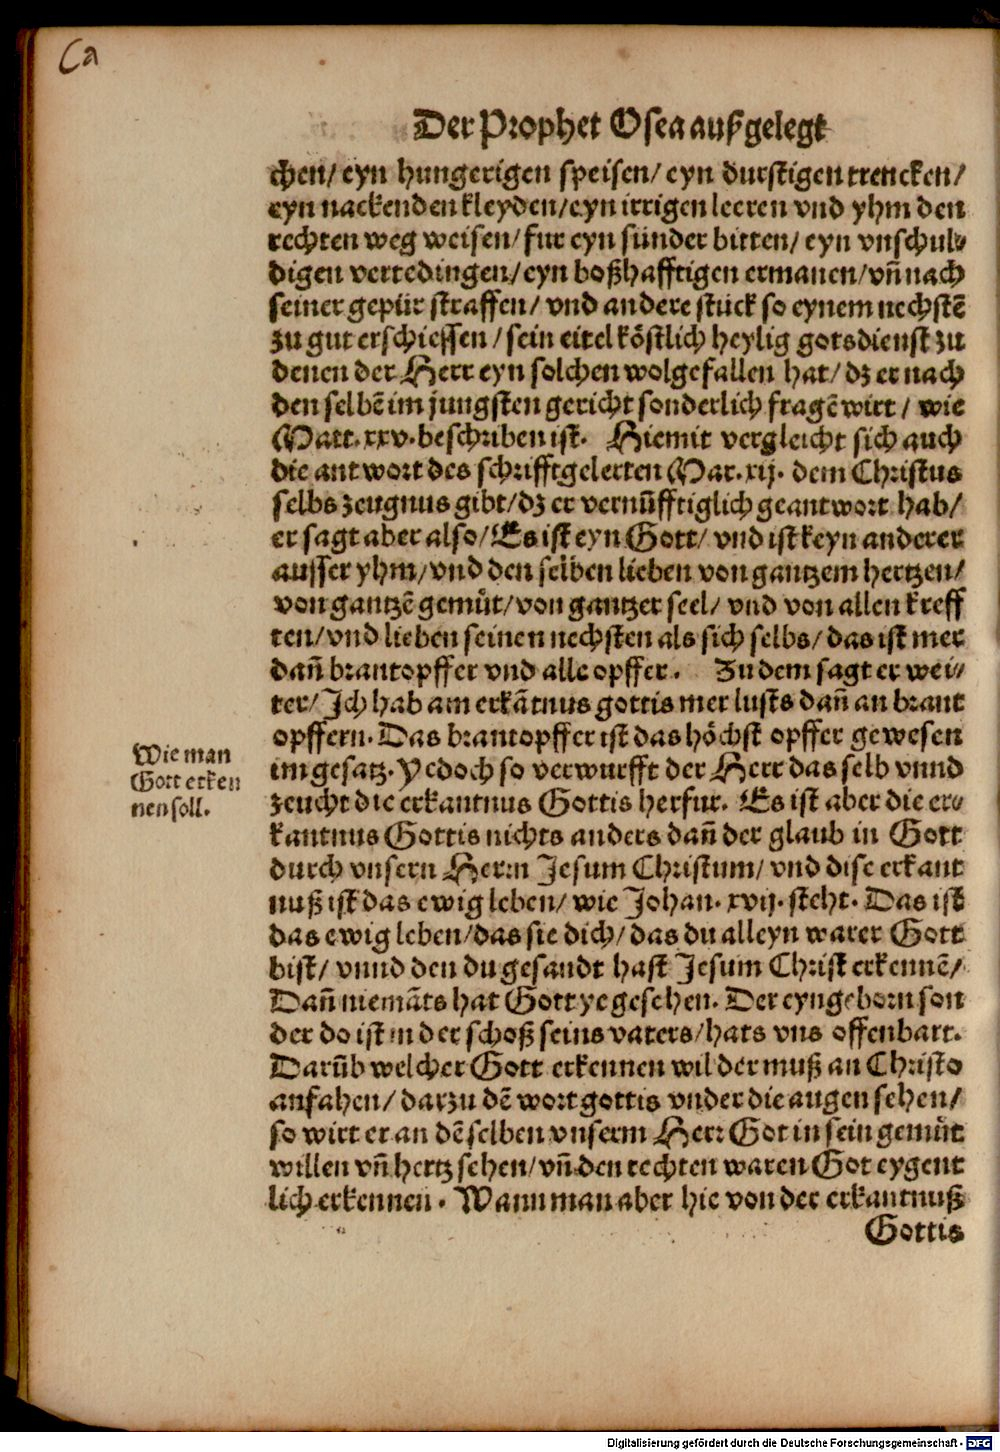 Ca
Der Prophet Osea außgelegt
chen/ eyn hungerigen speisen/ eyn durstigen trencken/
eyn nackenden kleyden/ eyn irrigen leeren vnd yhm den
rechten weg weisen/ fur eyn sünder bitten/ eyn vnschul⸗
digen vertedingen/ eyn boßhafftigen ermanen/ vñ nach
seiner gepür straffen/ vnd andere stück so eynem nechstē
zu gut erschiessen/ sein eitel köstlich heylig gotsdienst zu
denen der Herr eyn solchen wolgefallen hat/ dz er nach
den selbē im jungsten gericht sonderlich fragē wirt/ wie
Matt. xxv. beschriben ist. Hiemit vergleicht sich auch
die antwort des schrifftgelerten Mar. xij. dem Christus
selbs zeugnus gibt/ dz er vernüfftiglich geantwort hab/
er sagt aber also/ Es ist eyn Gott/ vnd ist keyn anderer
ausser yhm/ vnd den selben lieben von gantzem hertzen/
von gantzē gemüt/ von gantzer seel/ vnd von allen kreff
ten/ vnd lieben seinen nechsten als sich selbs/ das ist mer
dañ brantopffer vnd alle opffer. Zu dem sagt er wei⸗
ter/ Ich hab am erkātnus gottis mer lusts dañ an brant
opffern. Das brantopffer ist das höchst opffer gewesen
im gesatz. Yedoch so verwurfft der Herr das selb vnnd
zeucht die erkantnus Gottis herfur. Es ist aber die er⸗
kantnus Gottis nichts anders dañ der glaub in Gott
durch vnsern Herrn Jesum Christum/ vnd dise erkant
nuß ist das ewig leben/ wie Johan. xvij. steht. Das ist
das ewig leben/ das sie dich/ das du alleyn warer Gott
bist/ vnnd den du gesandt hast Jesum Christ erkennē/
Dañ niemāts hat Gott ye gesehen. Der eyngeborn son
der do ist in der schoß seins vaters/ hats vns offenbart.
Darüb welcher Gott erkennen wil der muß an Christo
anfahen/ darzu dē wort gottis vnder die augen sehen/
so wirt er an dē selben vnserm Herr Got in sein gemüt
willen vñ hertz sehen/ vñ den rechten waren Got eygent
lich erkennen. Wann man aber hie von der erkantnuß
Gottis
Wie man
Gott erken
nen soll.
Digitalisierung gefördert durch die Deutsche Forschungsgemeinschaft - DFG